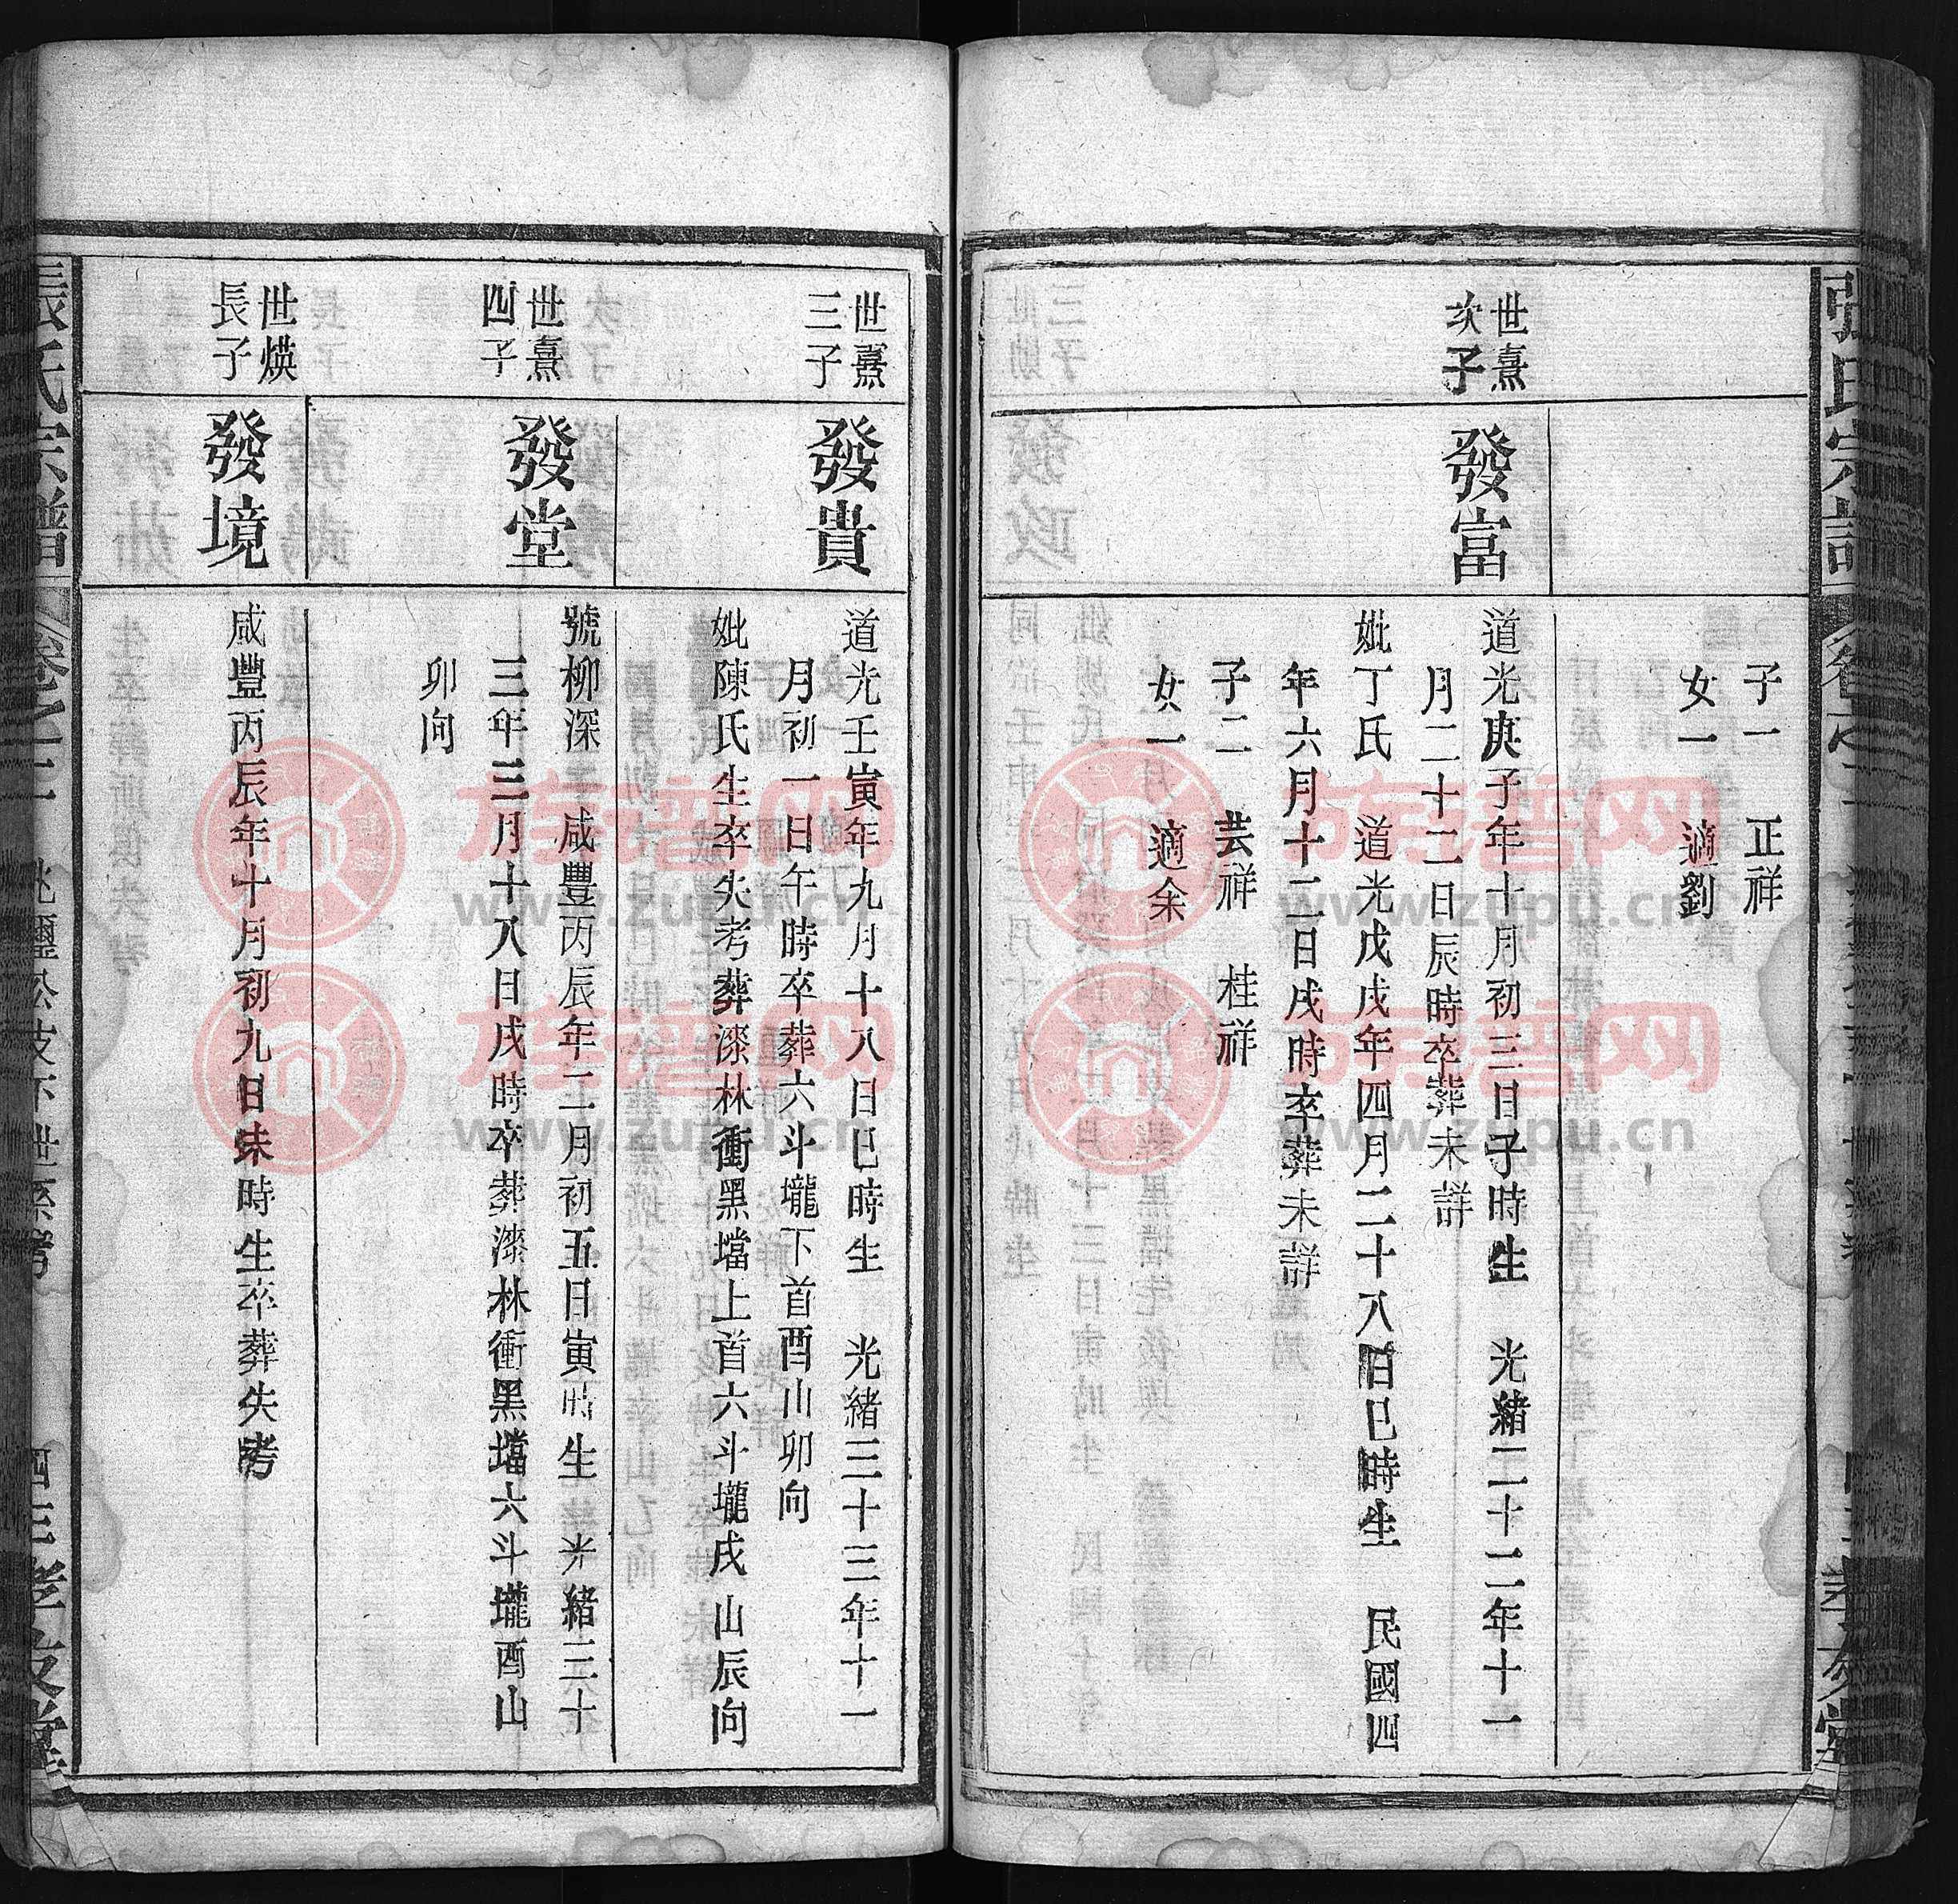 子一　正祥
女一　適劉
世熹
次子
發富
道光庚子年十月初三日子時生　光緒二十二年十一
月二十二日辰時卒葬未詳
妣丁氏　道光戊戌年四月二十八日巳時生　民國四
年六月十二日戌時卒葬未詳
子二　芸祥　桂祥
女一　適余
世熹
三子
發貴
道光壬寅年九月十八日巳時生　光緒三十三年十一
月初一日午時卒葬六斗壠下首酉山卯向
妣陳氏生卒失考葬漆林衝黑壋上首六斗壠戌山辰向
世熹
四子
發堂
號柳深　咸豐丙辰年二月初五日寅時生　光緒三十
三年三月十八日戌時卒葬漆林衝黑壋六斗壠酉山
卯向
世煐
長子
發境
咸豐丙辰年十月初九日未時生卒葬失考
張氏宗譜
卷之
孝友堂
族谱网
www.zupu.cn
族谱网
www.zupu.cn
族谱网
www.zupu.cn
族谱网
www.zupu.cn